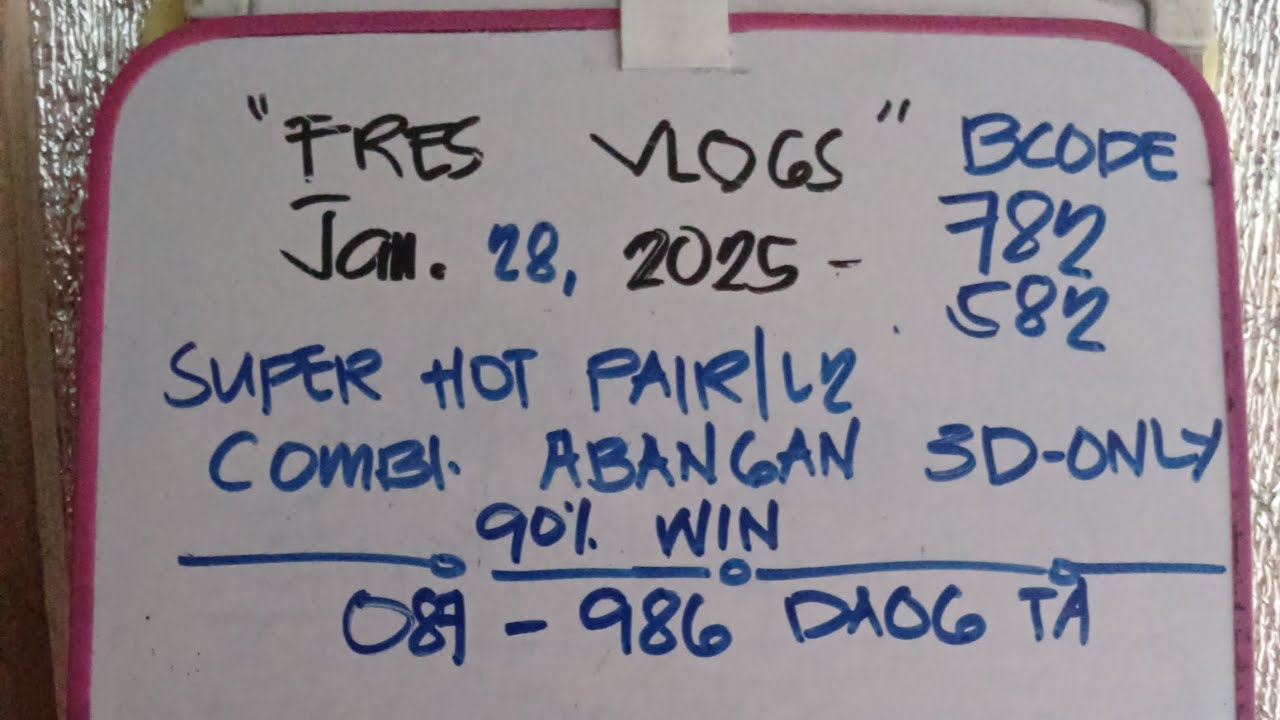 "FRES VLOGS" BCODE
Jan. 28, 2025 - 782
582
SUPER HOT PAIR/L2
COMBI. ABANGAN 3D-ONLY
90% WIN
089 - 986 DAOG TA